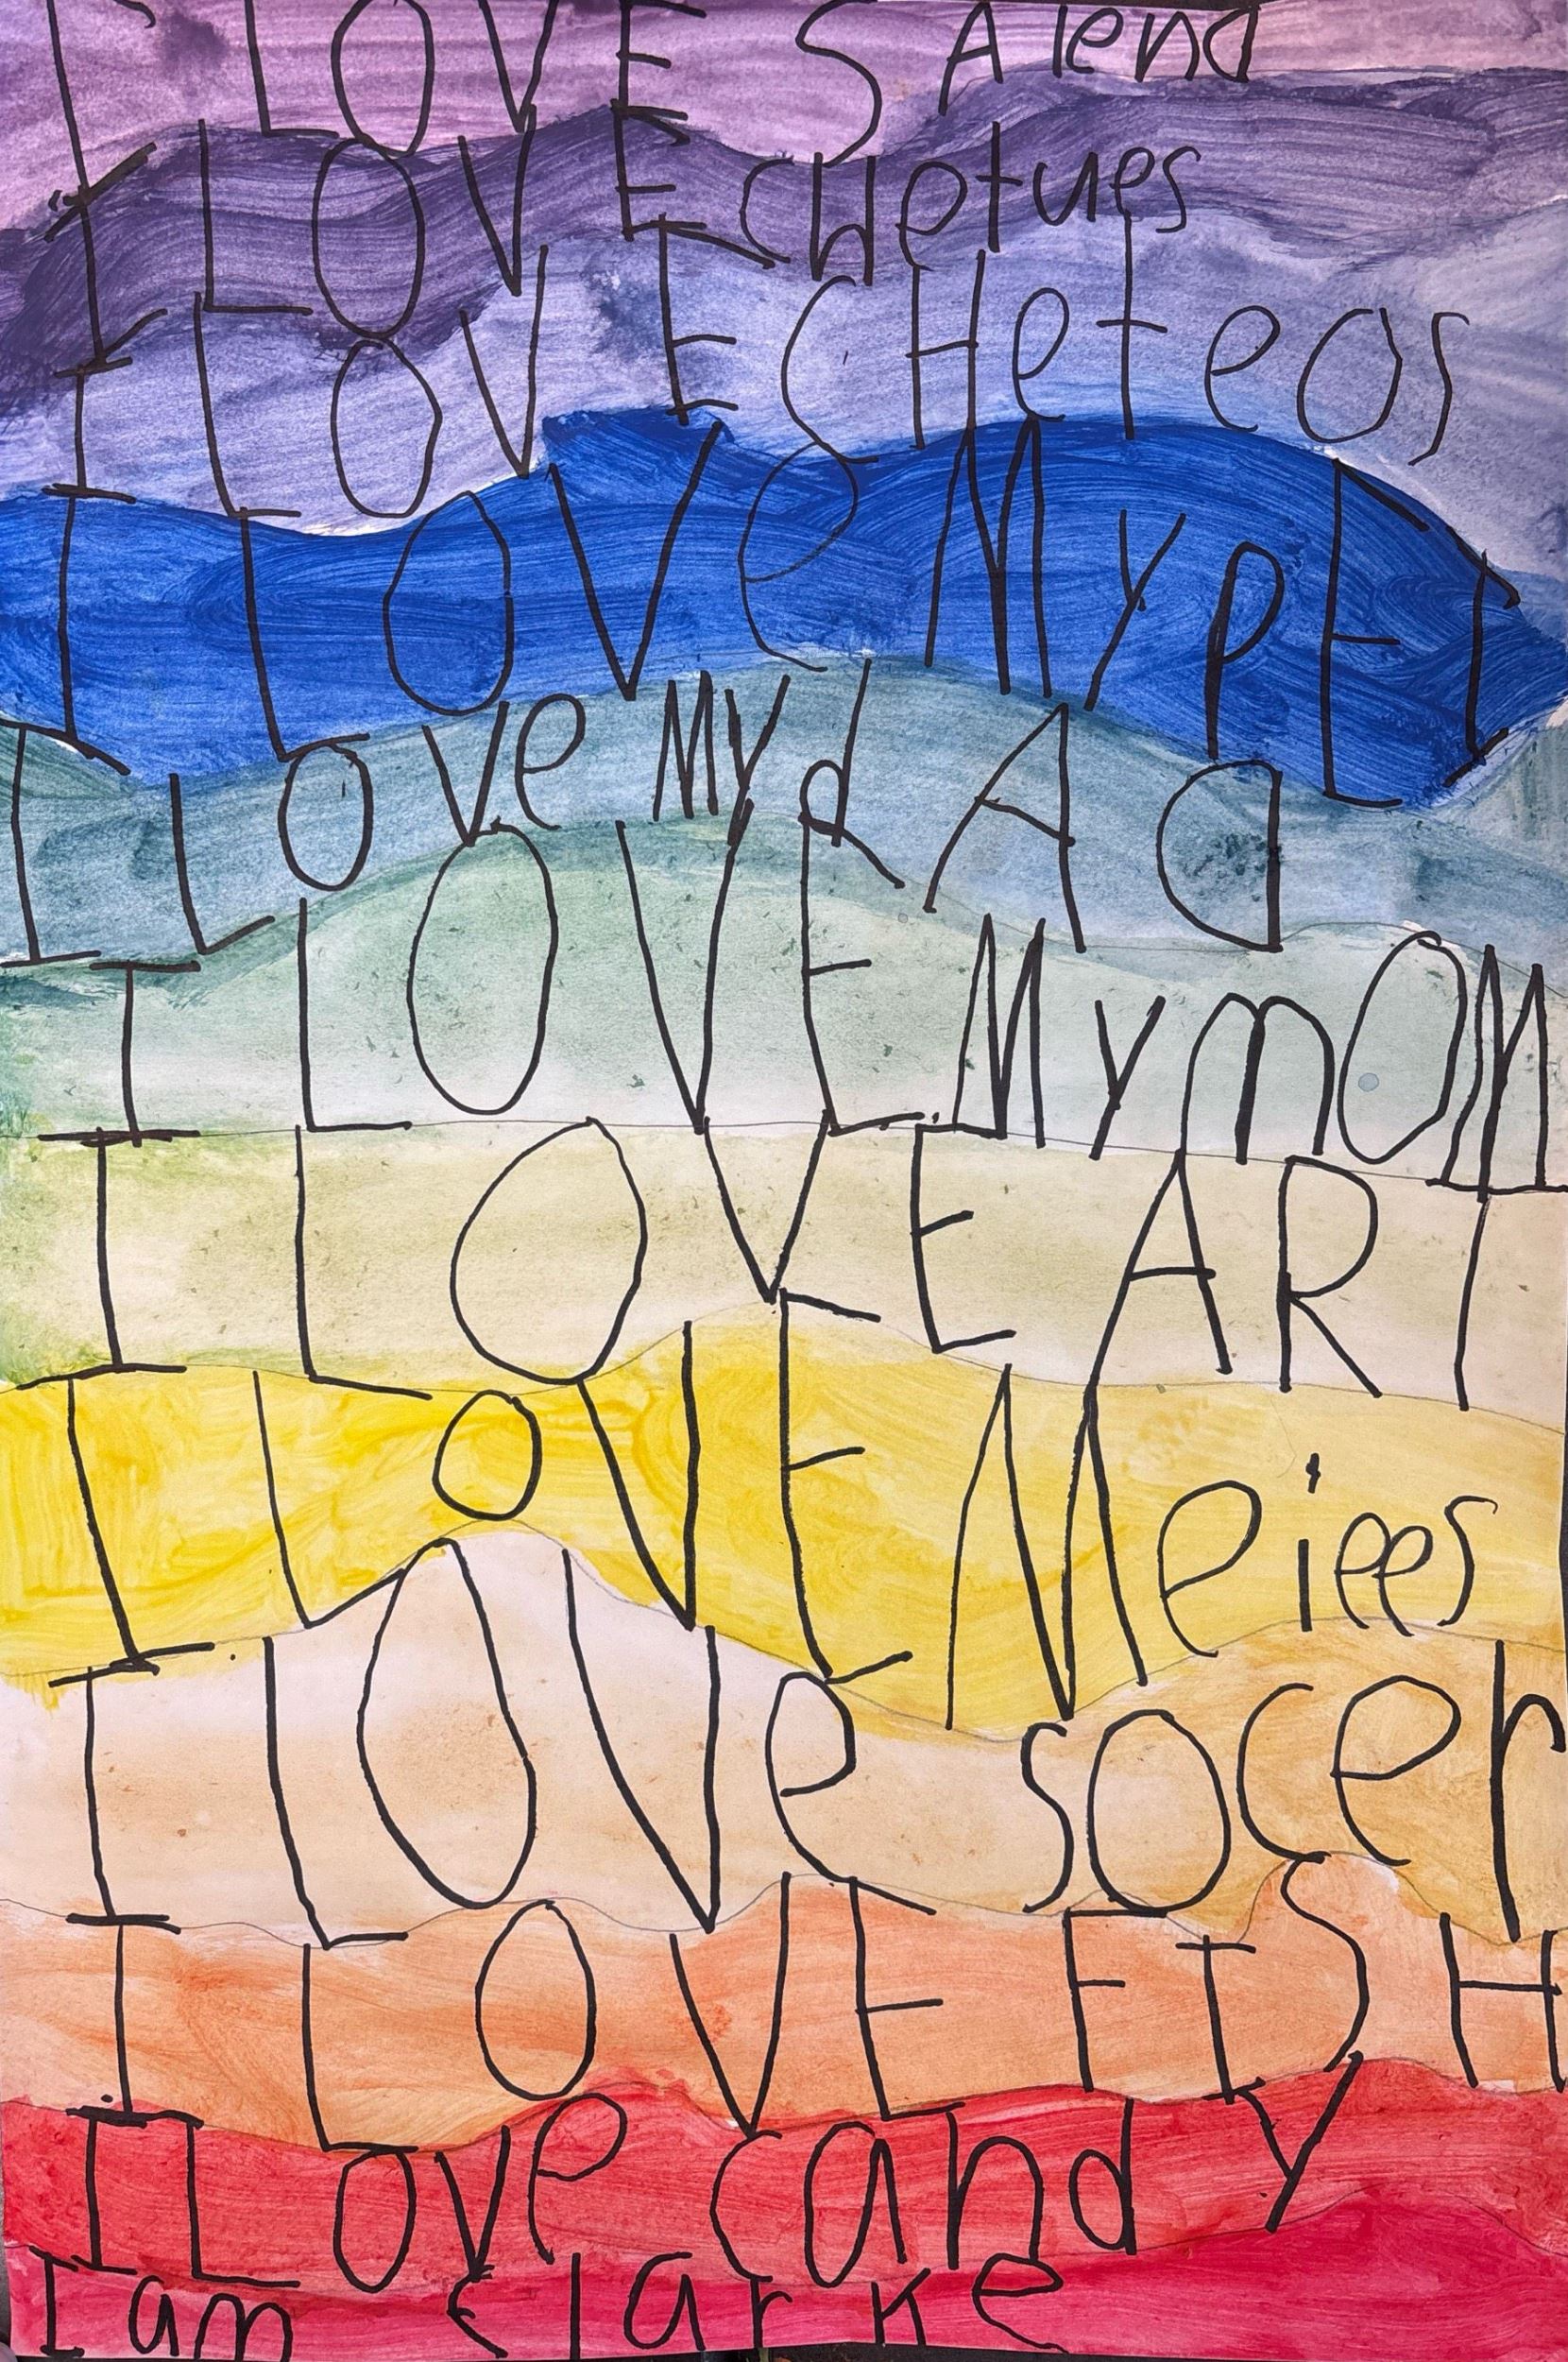 I LOVE SAlena
I LOVE cHetues
I LOVE CHeteos
I LOVe My pET
I LOve My dAd
I LOVE My mOM
I LOVE ART
I LOVE Meiees
I LOVe socer
I LOVE FISH
I Love candy
I am clarke